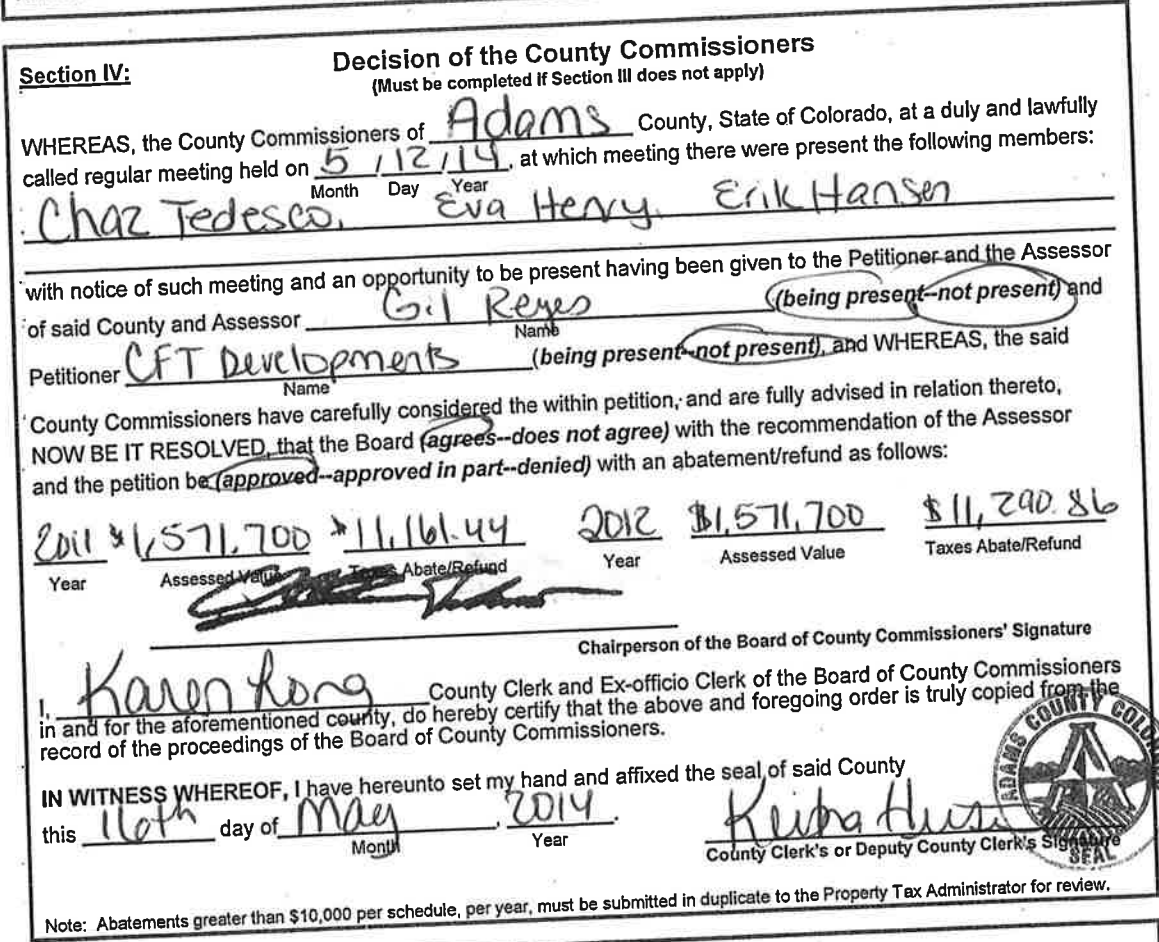 Section IV:
Decision of the County Commissioners
(Must be completed if Section III does not apply)
WHEREAS, the County Commissioners of Adams County, State of Colorado, at a duly and lawfully
called regular meeting held on 5 / 12 / 14, at which meeting there were present the following members:
Month Day Year
Chaz Tedesco, Eva Henry, Erik Hansen
with notice of such meeting and an opportunity to be present having been given to the Petitioner and the Assessor
of said County and Assessor Gil Reyes (being present--not present) and
Name
Petitioner CFT Developments (being present--not present), and WHEREAS, the said
Name
County Commissioners have carefully considered the within petition, and are fully advised in relation thereto,
NOW BE IT RESOLVED, that the Board (agrees--does not agree) with the recommendation of the Assessor
and the petition be (approved--approved in part--denied) with an abatement/refund as follows:
2011 $1,571,700 $11,161.44 2012 $1,571,700 $11,290.86
Year Assessed Value Taxes Abate/Refund Year Assessed Value Taxes Abate/Refund
Chairperson of the Board of County Commissioners' Signature
I, Karen Long County Clerk and Ex-officio Clerk of the Board of County Commissioners
in and for the aforementioned county, do hereby certify that the above and foregoing order is truly copied from the
record of the proceedings of the Board of County Commissioners.
IN WITNESS WHEREOF, I have hereunto set my hand and affixed the seal of said County
this 16th day of May, 2014.
Month Year
County Clerk's or Deputy County Clerk's Signature
ADAMS COUNTY COLORADO
SEAL
Note: Abatements greater than $10,000 per schedule, per year, must be submitted in duplicate to the Property Tax Administrator for review.